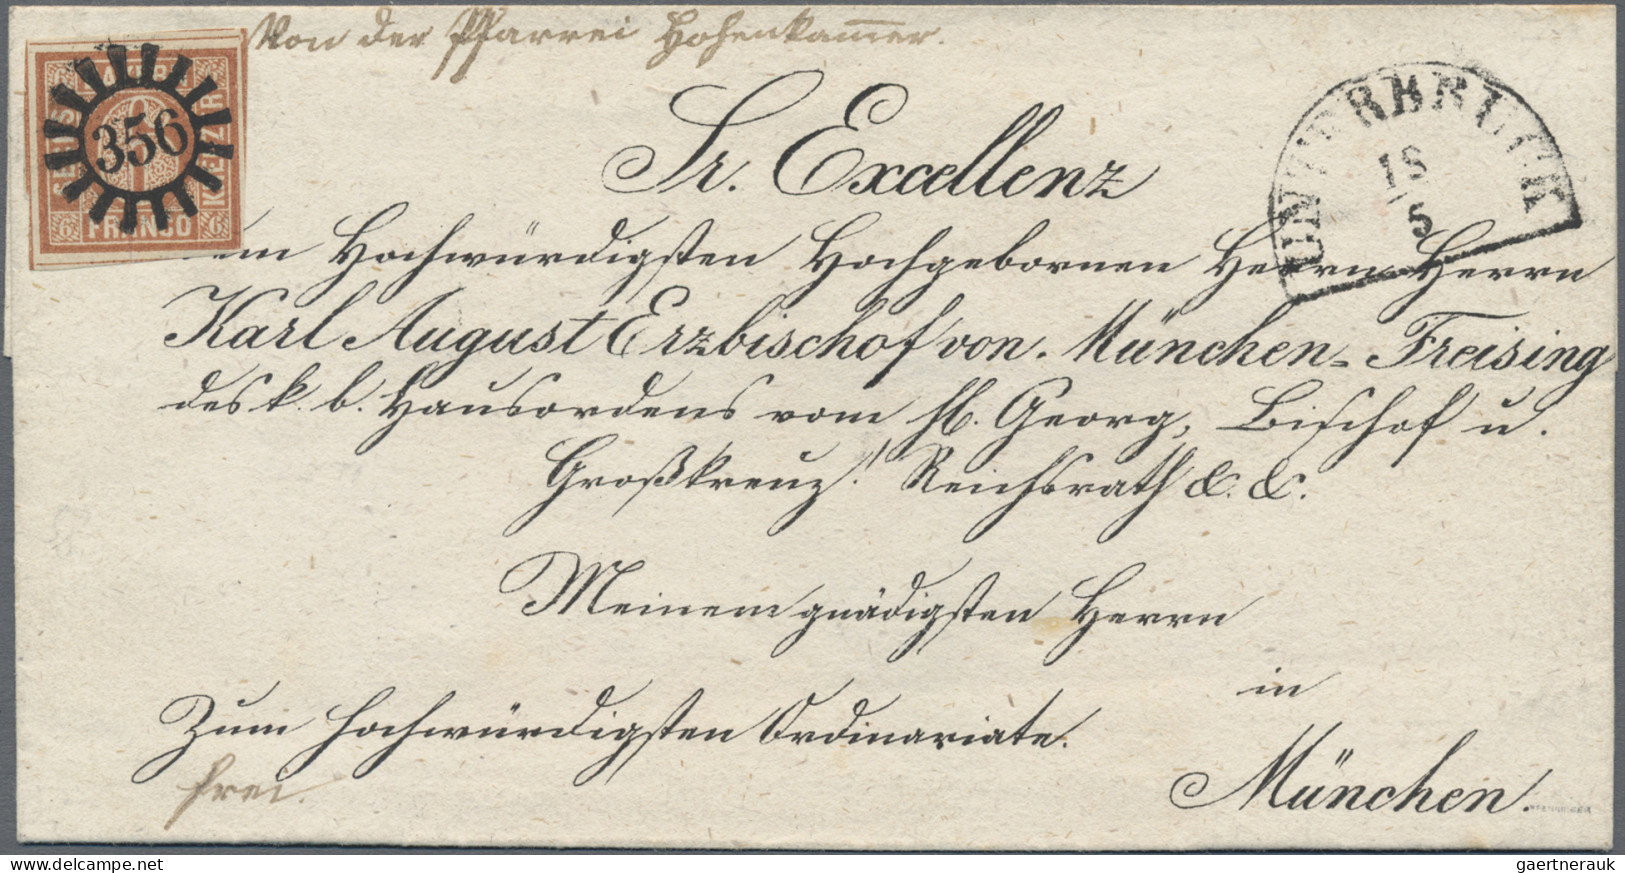 Von der Pfarrei Hohenkammer.
BAYERN
SECHS
KREUZER
FRANCO
6 6
6 6
356
UNTERBRUCK
18
/5
Sr. Excellenz
em Hochwürdigsten Hochgebornen Herrn Herrn
Karl August Erzbischof von. München-Freising
des k. b. Hausordens vom hl. Georg, Bischof u.
Großkreuz! Reichsrath &. &.
Meinem gnädigsten Herrn
in
Zum hochwürdigsten Ordinariate.
München.
frei.
gaertnerauk
© delcampe.net